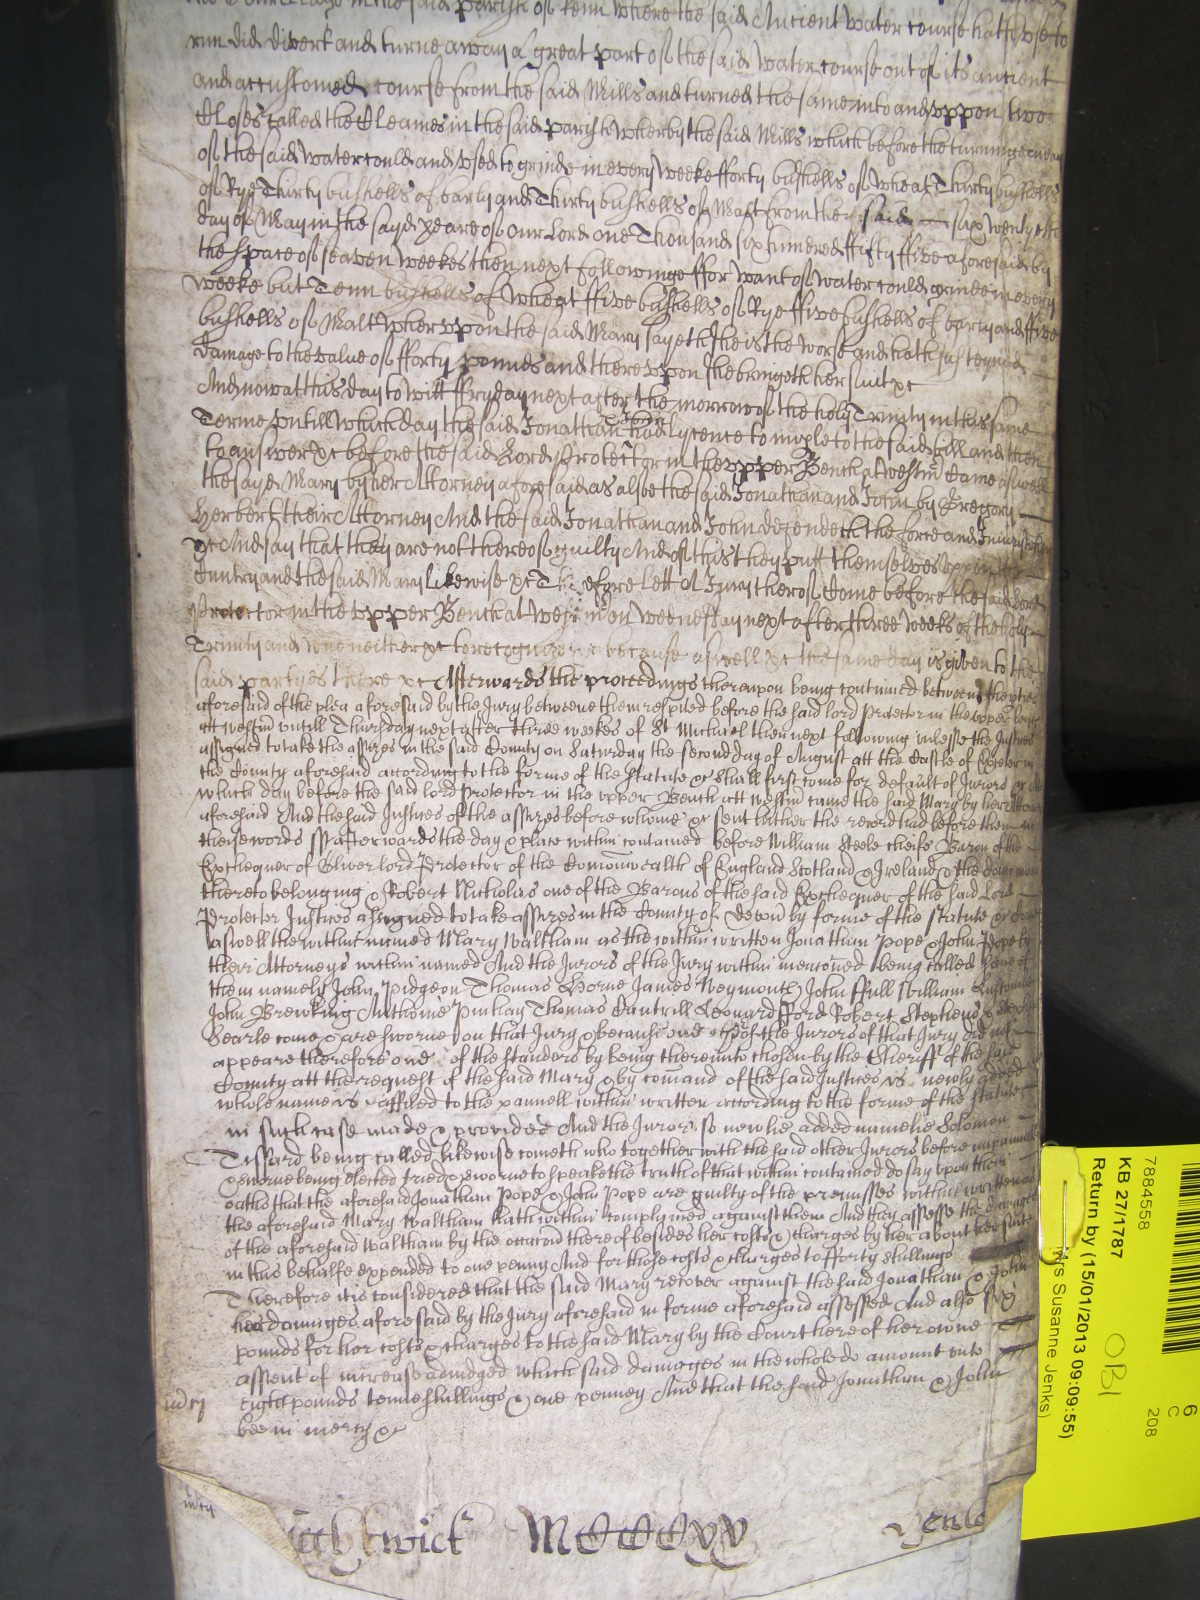 the said parish of Kenn where the said Ancient water course hath used to
run did divert and turne away a great part of the said water course out of its ancient
and accustomed course from the said Mills and turned the same into and uppon two
Closes called the Cleames in the said parish wherby the said Mills which before the turninge away
of the said water could and used to grinde in every weeke fforty bushells of wheat Thirty bushells
of Rye Thirty bushells of barly and Thirty bushells of Malt from the said six twentyeth
day of May in the sayd yeare of our Lord one Thousand six hundred ffifty ffive aforesaid by
the space of seaven weekes then next followinge ffor want of water could grinde in every
weeke but Tenn bushells of wheat ffive bushells of Rye ffive bushells of barly and ffive
bushells of Malt wheruppon the said Mary sayeth she is the worse and hath susteyned
damage to the value of fforty pounds and thereuppon she bringeth her suit &c
And now at this day to witt ffryday next after the morrow of the holy Trinity in this same
Terme untill which day the said Jonathan had lycence to imple to the said bill and then
to answer &c before the said Lord Protector in the upper Bench at Westm Came aswell
the sayd Mary by her Attorney aforesaid as alsoe the said Jonathan and John by Gregory
Herbert their Attorney And the said Jonathan and John defendeth the force and Injury when
&c And say that they are not thereof guilty And of this they putt themselves upon the
Cuntry and the said Mary likewise &c Therefore lett a Jury therof Come before the said Lord
Protector in the upper Bench at Westm on Wednesday next after three weeks of the holy
Trinity and who neither &c to recognize &c because aswell &c the same day is given to the
said partyes there &c Afterwards the proceedings thereupon being continued betweene the pties
aforesaid of the plea aforesaid by the Jury betweene them respited before the said lord Protector in the upper bench
att westm untill Thursday next after three weekes of St Michael then next following unlesse the Justices
assigned to take the assizes in the said County on Saturday the second day of August att the Castle of Exeter in
the County aforesaid according to the forme of the statute &c shall first come for default of Jurors &c att
which day before the said lord Protector in the upper Bench att westm came the said Mary by her Attorney
aforesaid And the said Justices of the assizes before whome &c sent hither the record had before them in
these words ss afterwards the day & place within contained before William Steele cheife Baron of the
Exchequer of Oliver lord Protector of the Comonwealth of England Scotland & Ireland & the dominions
thereto belonging & Robert Nicholas one of the Barons of the said Exchequer of the said Lord
Protector Justices assigned to take assizes in the County of Devon by forme of the statute &c came
aswell the within named Mary Waltham as the within written Jonathan Pope & John Pope by
their Attorneys within named And the Jurors of the Jury within menconed being called some of
them namely John Pidgeon Thomas Horne James Weymouth John ffull William
John Brewking Anthonie Pinhay Thomas Cantrill Leonard fford Robert Stephens &
Searle come & are sworne upon that Jury & because one of the Jurors of that Jury did not
appeare therefore one of the standers by being thereunto chosen by the Sheriff of the said
County att the request of the said Mary & by comand of the said Justices is newly added
whose name is affiled to the pannell within written according to the forme of the statute
in such case made & provided And the Juror so newlie added namelie Solomon
Tissard being called likewise cometh who together with the said other Jurors before impannelled
& sworne being elected tried & sworne to speake the truth of that within contained do say upon their
oaths that the aforesaid Jonathan Pope & John Pope are guilty of the premisses within written as
the aforesaid Mary Waltham hath within complayned against them And they assesse the damages
of the aforesaid Waltham by the occasion thereof besides her costs & charges by her about her suite
in this behalfe expended to one penny And for those costs & charges to fforty shillings
Therefore it is considered that the said Mary recover against the said Jonathan & John
her damages aforesaid by the Jury aforesaid in forme aforesaid assessed And also six
pounds for her costs & charges to the said Mary by the Court here of her owne
assent of increase adiudged which said damages in the whole do amount unto
Eight pounds tenne shillings & one penney And that the said Jonathan & John
bee in mercy &c
MCCCCxx
7884558
KB 27/1787
Return by (15/01/2013 09:09:55)
Mrs Susanne Jenks)
OBI
6
C
208